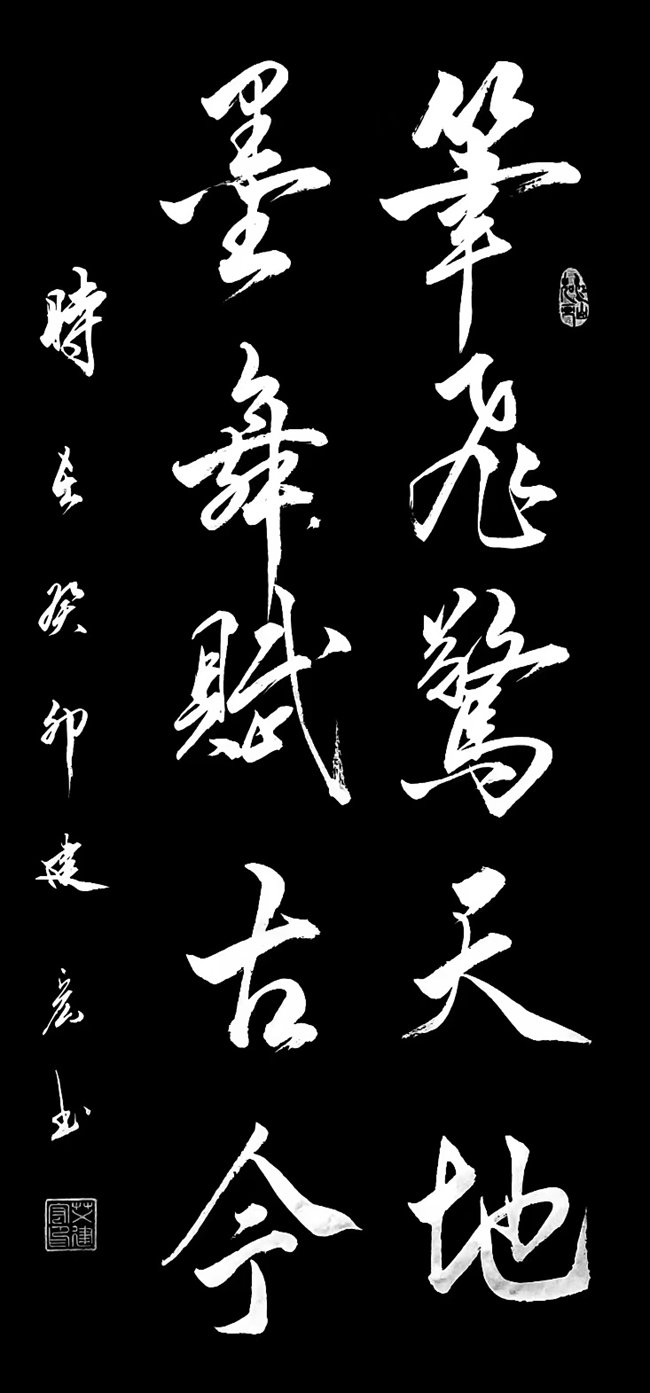 筆飛驚天地
墨舞賦古今
時在癸卯建宏书
艾建宏印